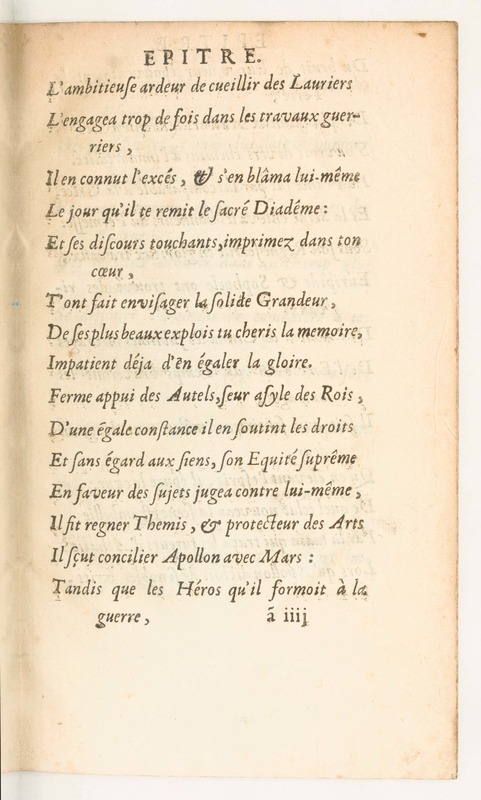 EPITRE.
L'ambitieuſe ardeur de cueillir des Lauriers
L'engagea trop de fois dans les travaux guer-
riers,
Il en connut l'excés, & s'en blâma lui-même
Le jour qu'il te remit le ſacré Diadéme:
Et ſes diſcours touchants, imprimez dans ton
cœur,
T'ont fait enviſager la ſolide Grandeur,
De ſes plus beaux explois tu cheris la memoire,
Impatient déja d'en égaler la gloire.
Ferme appui des Autels, ſeur aſyle des Rois,
D'une égale conſtance il en ſoutint les droits
Et ſans égard aux ſiens, ſon Equité ſuprême
En faveur des ſujets jugea contre lui-même,
Il fit regner Themis, & protecteur des Arts
Il ſçut concilier Apollon avec Mars:
Tandis que les Héros qu'il formoit à la
guerre, ã iiij